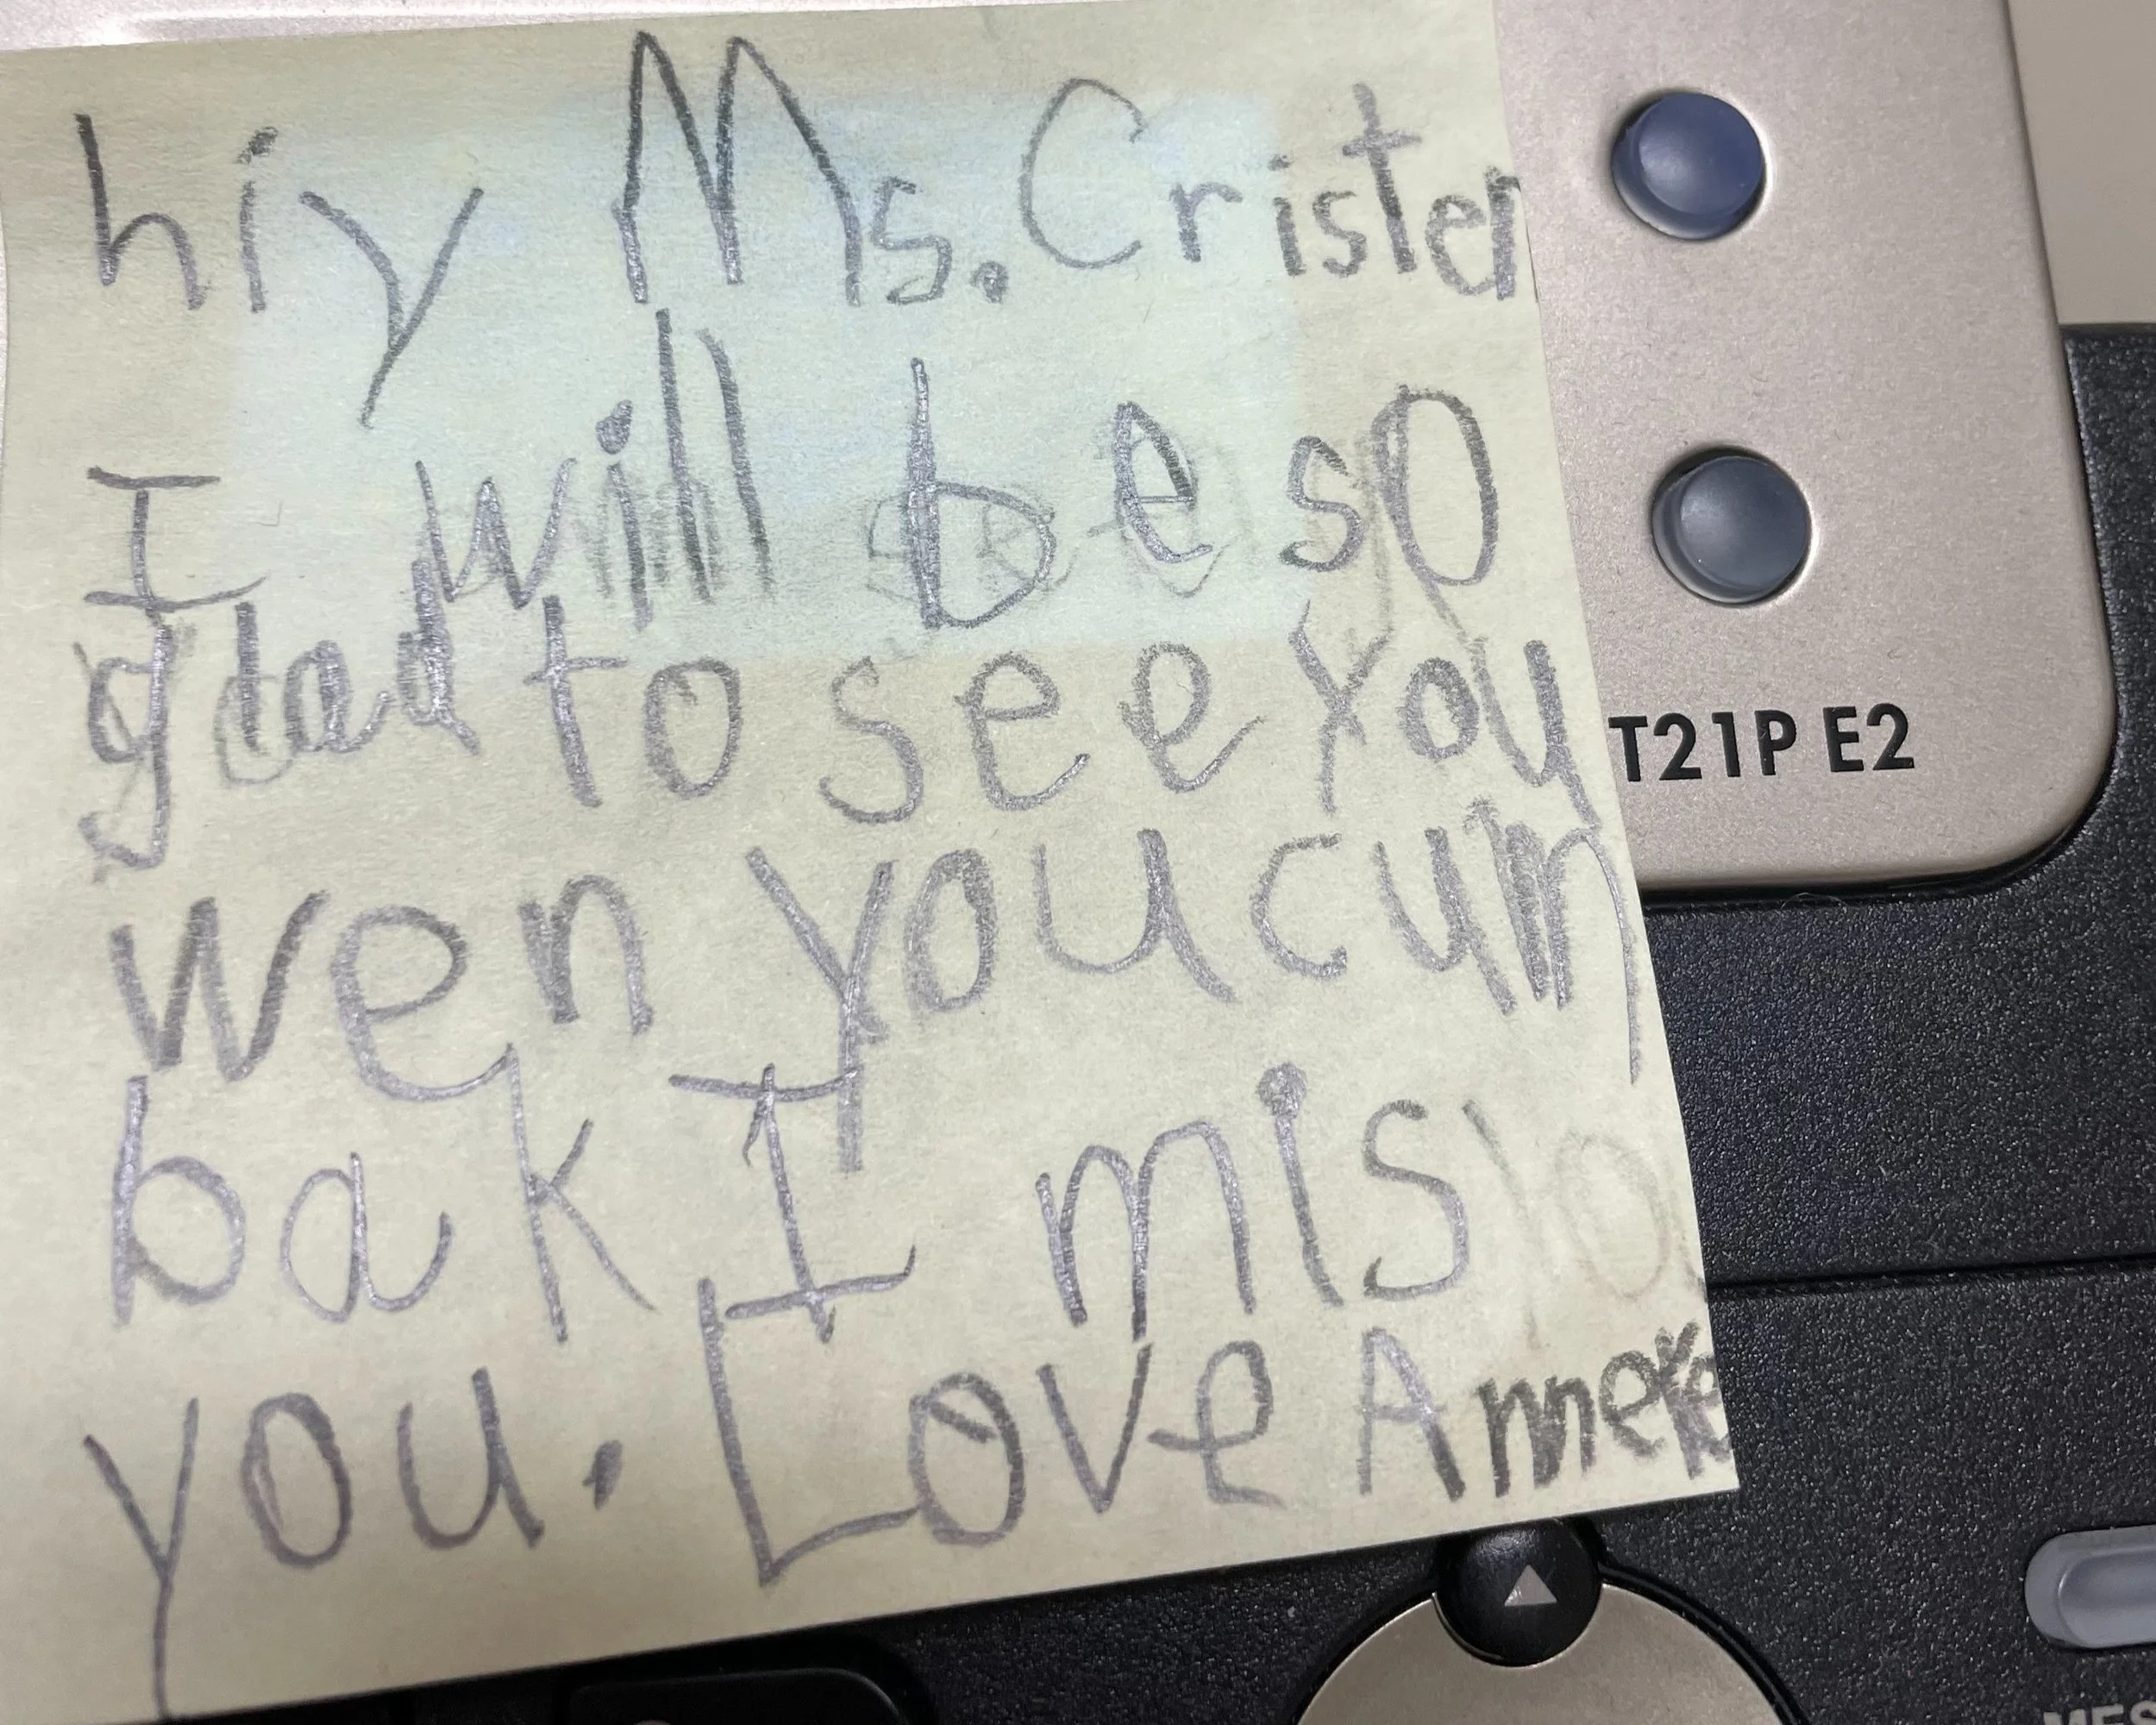 hiy Ms. Cristen
I will be so
glad to see you
wen you cum
bak I mis
you. Love
T21P E2